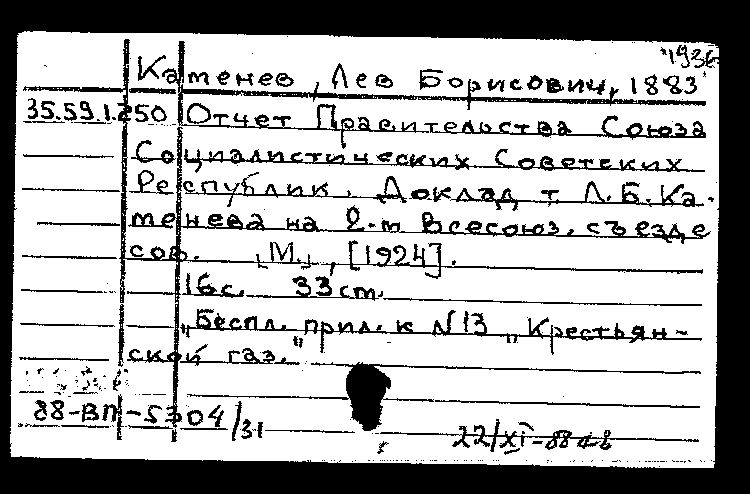 1936
Каменев, Лев Борисович, 1883
35.59.1.250 Отчет Правительства Союза
Социалистических Советских
Республик. Доклад т Л.Б.Ка-
менева на 2-м Всесоюз. съезде
сов. [М.], [1924].
16с. 33ст.
"Беспл. прил. к N13 "Крестьян-
ской газ."
88-ВП-5304/31
22/XI-88